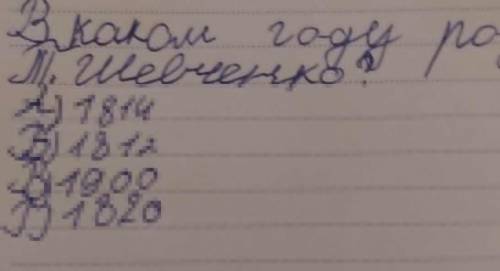 В каком году ро
Т. Шевченко?
А) 1814
Б) 1812
В) 1900
Г) 1820